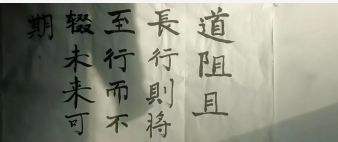 道阻且
長行則將
至行而不
輟未来可
期